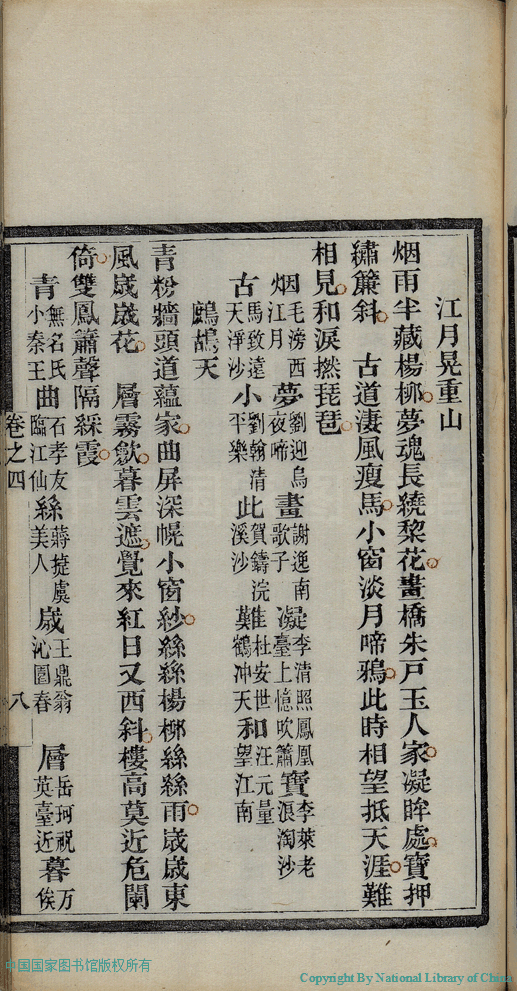 江月晃重山
烟雨半藏楊柳夢魂長繞黎花畫橋朱戸玉人家凝眸處寶押
繡簾斜　古道淒風瘦馬小窗淡月啼鴉此時相望抵天涯難
相見和淚撚琵琶
烟毛滂西江月夢劉迎烏夜啼畫謝逸南歌子凝李清照鳳凰臺上憶吹簫寶李萊老浪淘沙
古馬致遠天淨沙小劉翰清平樂此賀鑄浣溪沙難杜安世鶴冲天和汪元量望江南
鷓鴣天
青粉牆頭道蘊家曲屏深幌小窗紗絲絲楊柳絲絲雨歲歲東
風歲歲花　層霧斂暮雲遮覺來紅日又西斜樓高莫近危闌
倚雙鳳簫聲隔綵霞
青無名氏小秦王曲石孝友臨江仙絲蔣捷虞美人歲王鼎翁沁園春層岳珂祝英臺近暮万俟
卷之四　八
中国国家图书馆版权所有
Copyright By National Library of China